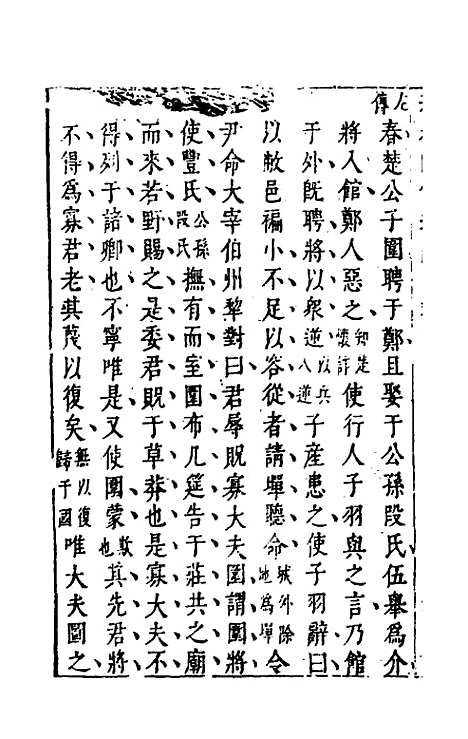 左傳
春楚公子圍聘于鄭且娶于公孫段氏伍舉爲介
將入館鄭人惡之知楚懷詐使行人子羽與之言乃館
于外旣聘將以衆逆以兵入逆子産患之使子羽辭曰
以敝邑褊小不足以容從者請墠聽命城外除地爲墠令
尹命大宰伯州犂對曰君辱貺寡大夫圍謂圍將
使豐氏公孫段氏撫有而室圍布几筵告于莊共之廟
而來若野賜之是委君貺于草莽也是寡大夫不
得列于諸卿也不寧唯是又使圍蒙欺也其先君將
不得爲寡君老其蔑以復矣無以復歸于國唯大夫圖之